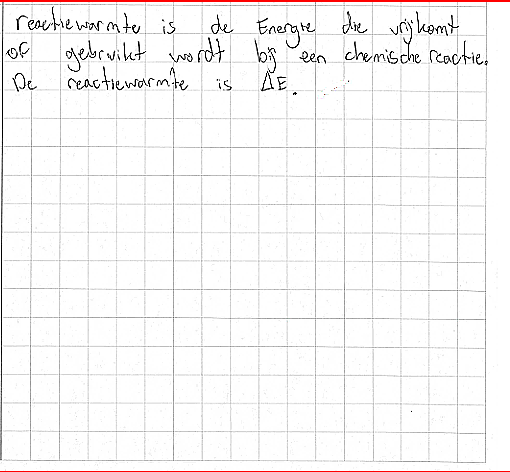 reactiewarmte is de Energie die vrijkomt
of gebruikt wordt bij een chemische reactie.
De reactiewarmte is ΔE.